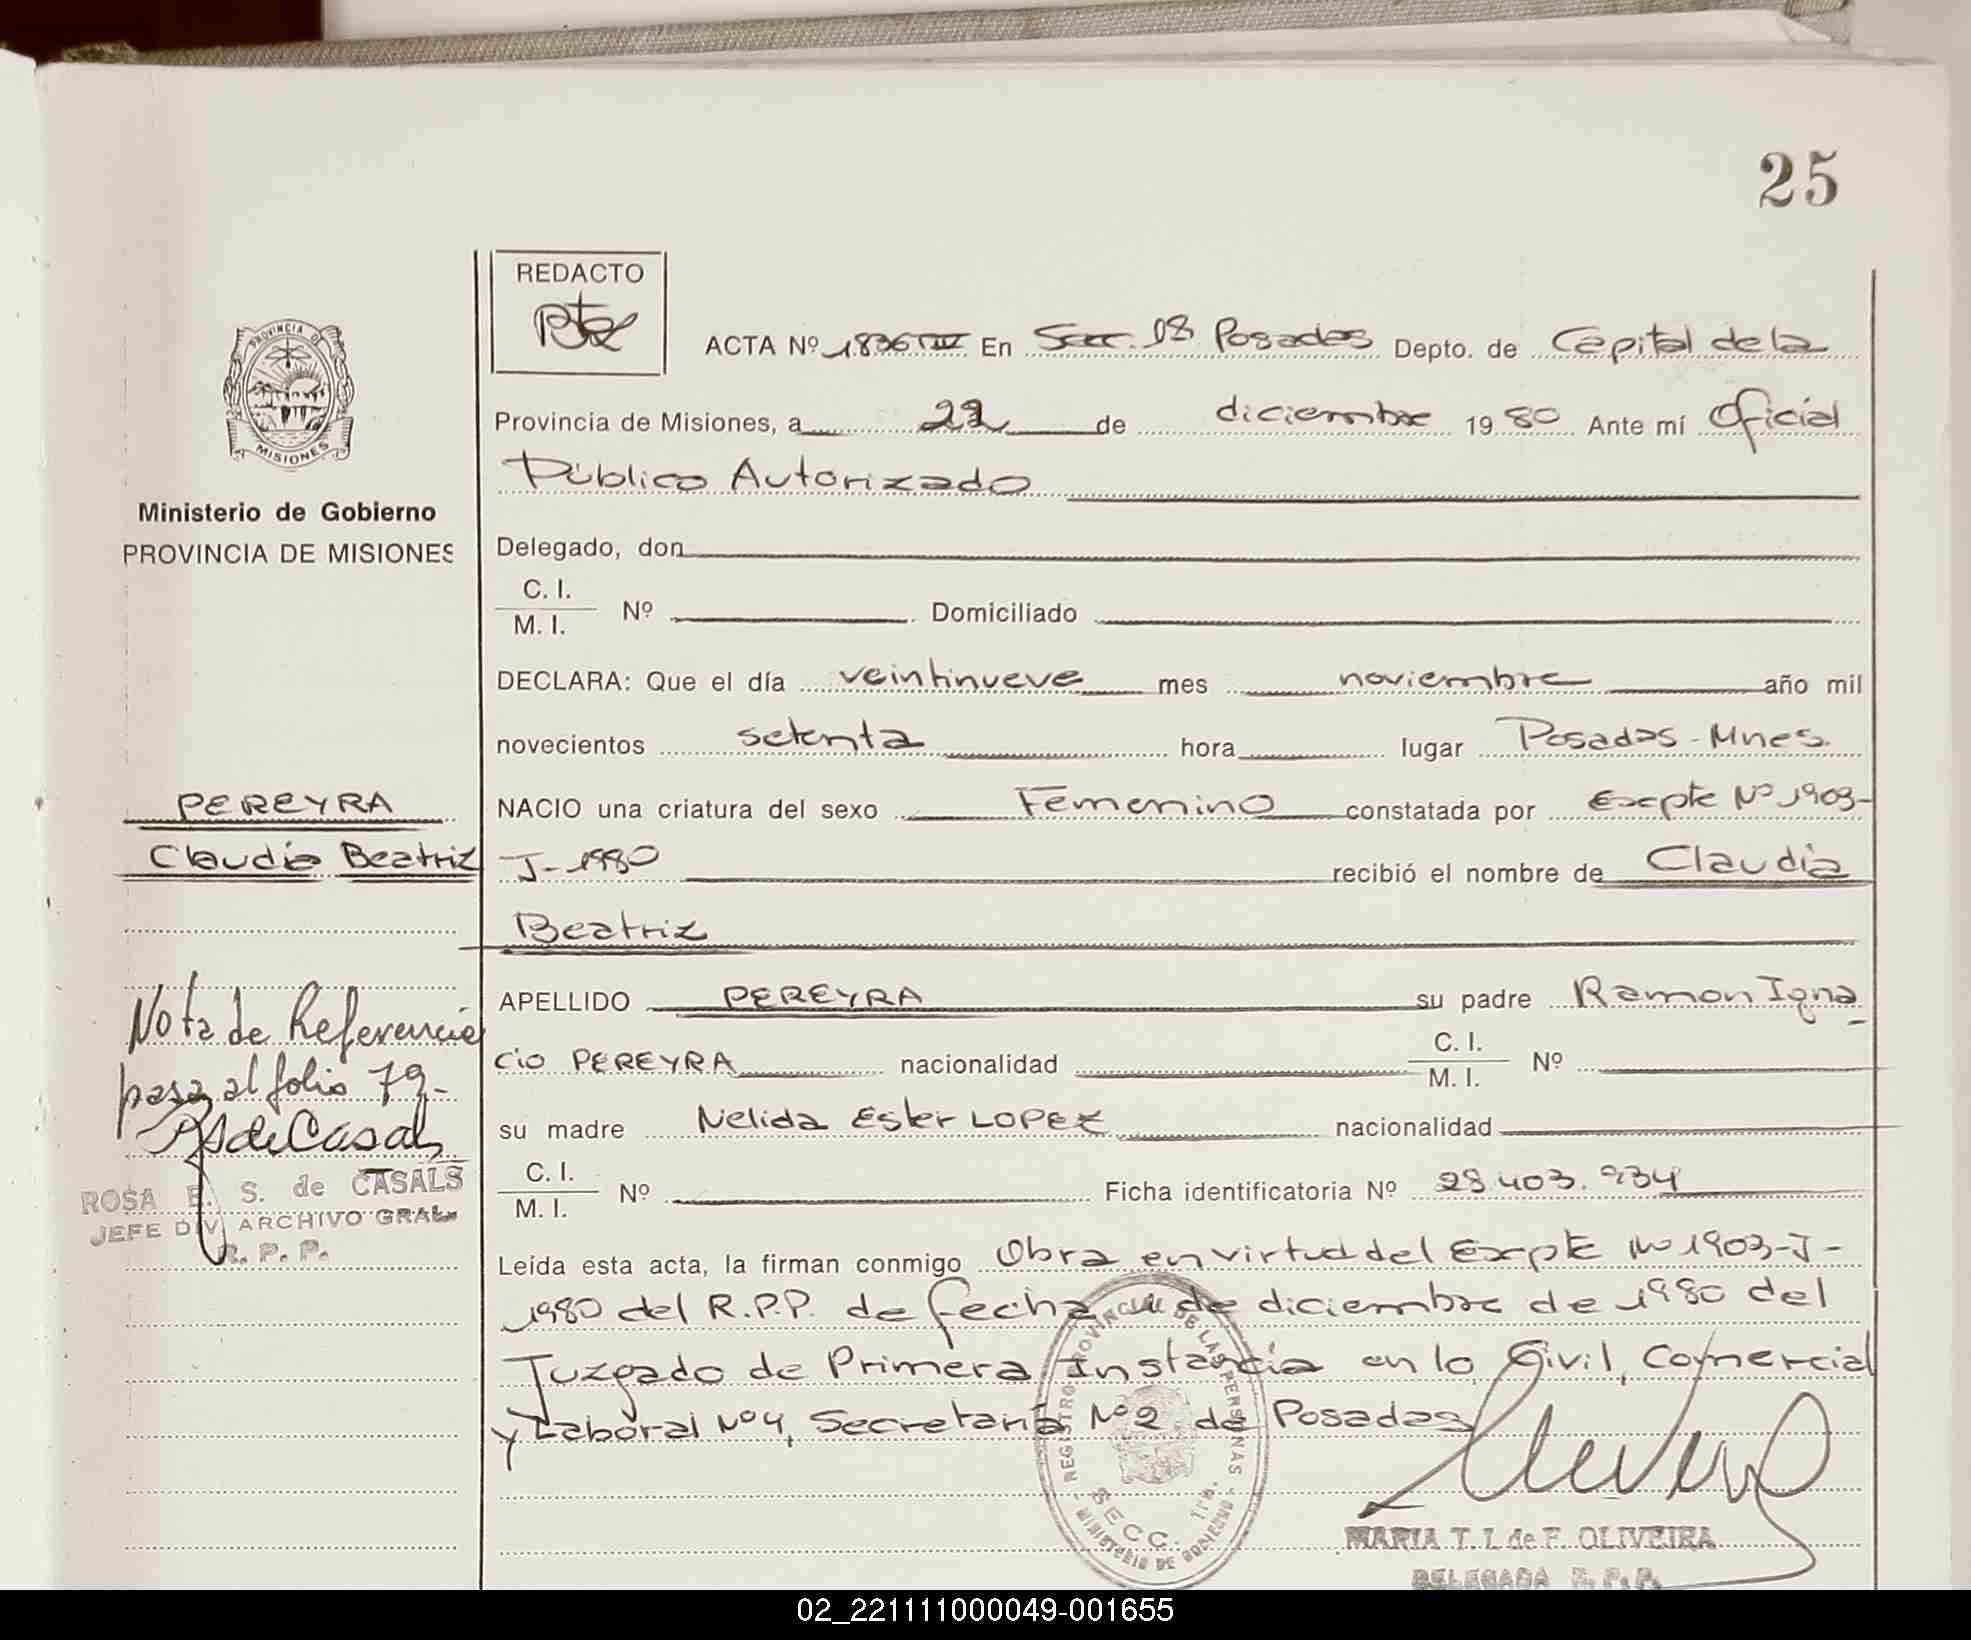 25
REDACTO
ACTA Nº 1836 TIV En Secc. 1ª Posadas Depto. de Capital de la
Provincia de Misiones, a 22 de diciembre 19 80 Ante mí Oficial
Público Autorizado
Delegado, don
C. I.
M. I. Nº Domiciliado
DECLARA: Que el día veintinueve mes noviembre año mil
novecientos setenta hora lugar Posadas - Mnes.
NACIO una criatura del sexo Femenino constatada por Expte Nº 1903-
J-1980 recibió el nombre de Claudia
Beatriz
APELLIDO PEREYRA su padre Ramon Igna
cio PEREYRA nacionalidad C. I. M. I. Nº
su madre Nelida Ester LOPEZ nacionalidad
C. I.
M. I. Nº Ficha identificatoria Nº 28.403.934
Leída esta acta, la firman conmigo Obra en virtud del Expte Nº 1903-J-
1980 del R.P.P. de fecha 4 de diciembre de 1980 del
Juzgado de Primera Instancia en lo Civil, Comercial
y Laboral Nº 4, Secretaría Nº 2 de Posadas
REGISTRO PROVINCIAL DE LAS PERSONAS - MINISTERIO DE GOBIERNO -
SECC. 1ra.
MARIA T. I. de F. OLIVEIRA
DELEGADA R.P.P.
PROVINCIA DE
MISIONES
Ministerio de Gobierno
PROVINCIA DE MISIONES
PEREYRA
Claudia Beatriz
Nota de Referencia
pasa al folio 79-
RSdeCasals
ROSA E. S. de CASALS
JEFE DIV. ARCHIVO GRAL.
R. P. P.
02_221111000049-001655